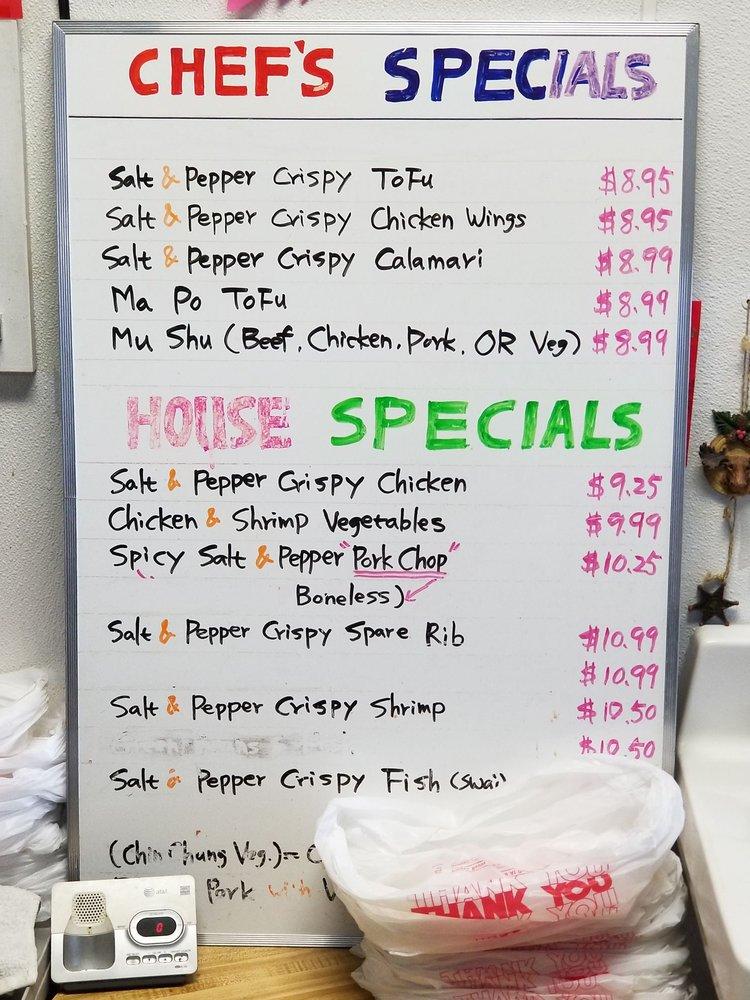 CHEF'S SPECIALS
Salt & Pepper Crispy ToFu $8.95
Salt & Pepper Crispy Chicken Wings $8.95
Salt & Pepper Crispy Calamari $8.99
Ma Po ToFu $8.99
Mu Shu (Beef, Chicken, Pork, OR Veg) $8.99
HOUSE SPECIALS
Salt & Pepper Crispy Chicken $9.25
Chicken & Shrimp Vegetables $9.99
Spicy Salt & Pepper "Pork Chop" $10.25
Boneless)
Salt & Pepper Crispy Spare Rib $10.99
$10.99
Salt & Pepper Crispy Shrimp $10.50
$10.50
Salt & Pepper Crispy Fish (Swai)
(Chin Chung Veg.)=
Pork with
at&t
0
THANK YOU
THANK YOU
YOU